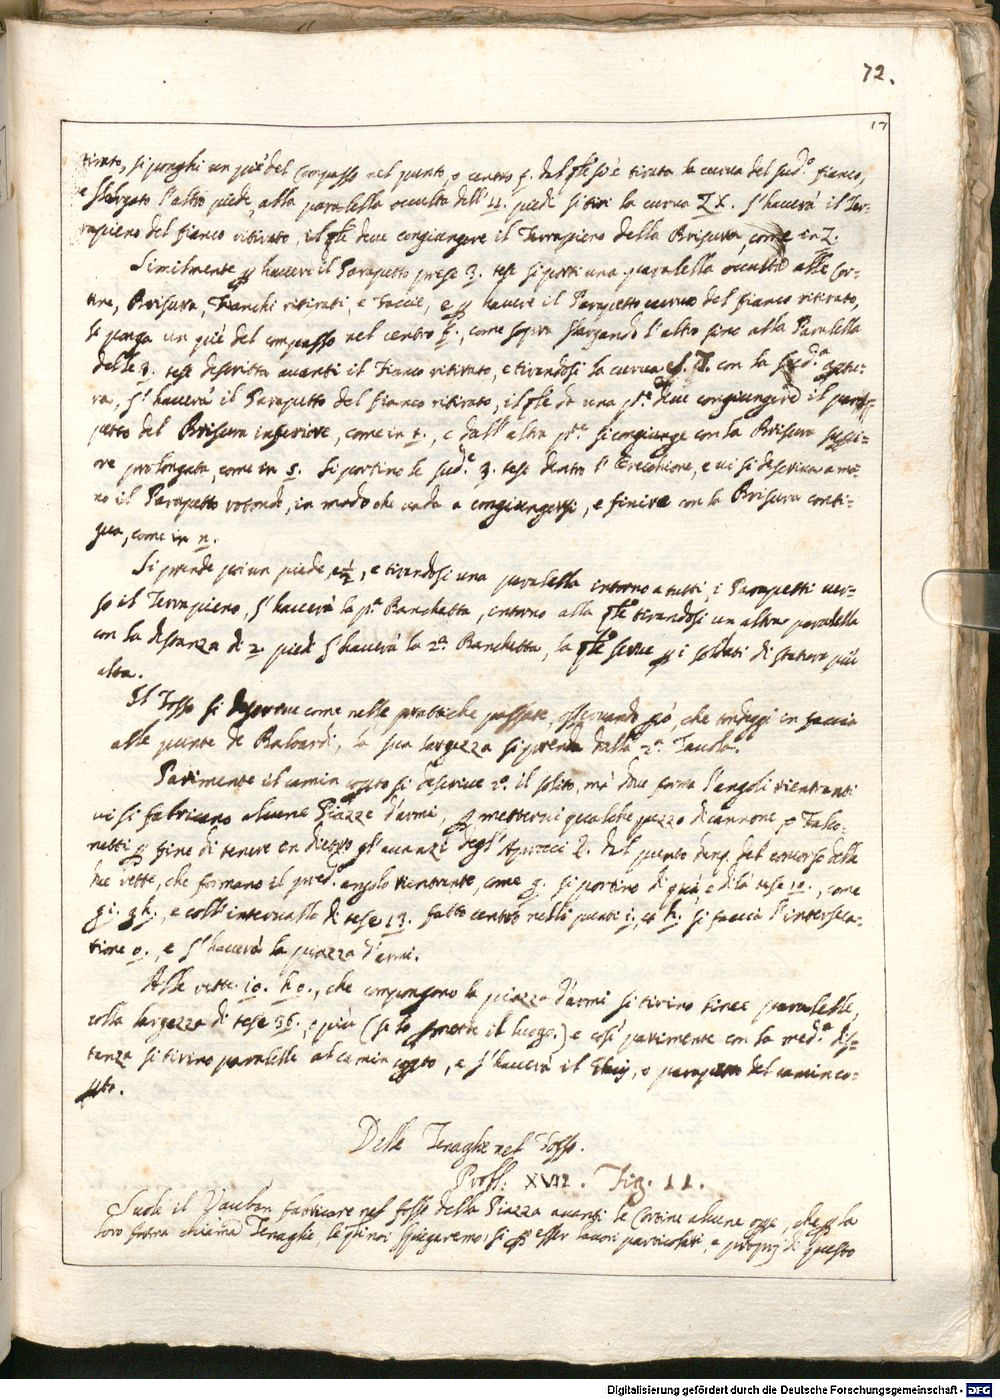 72.
17
tirato, si ponghi un piè del Compasso nel punto, o centro f. dal qle si è tirata la curva del sud.º fianco,
e slargato l'altro piede alla paralella occulta dell' 11. piedi si tiri la curva Z X. s'haverà il Ter-
rapieno del fianco ritirato, il qle deve congiungere il Terrapieno della Brisura, come in Z.
Similmente p haver il Parapetto prese 3. tese si porti una paralella occulta alle Cor-
tine, Brisura, Fianchi ritirati, e Faccie, e p havere il Parapetto curvo del fianco ritirato,
si ponga un piè del compasso nel centro f., come sopra slargando l'altro sino alla Paralella
delle 3. tese descritta avanti il Fianco ritirato, e tirandosi la curva con la sud.ª apertu-
ra, s'haverà il Parapetto del fianco ritirato, il qle da una p.te deve congiungere il para-
petto del Brisura inferiore, come in t., e dall'altra p.te si congiunge con la Brisura superi-
ore prolongata, come in s. Si portino le sud.e 3. tese dentro l'Orecchione, e vi si descriva a ma-
no il Parapetto rotondo, in modo che vada a congiungersi, e finire con la Brisura conti-
gua, come in n.
Si prende poi un piede, e ½, e tirandosi una paralella intorno a tutti i Parapetti ver-
so il Terrapieno, s'haverà la p.ª Banchetta, intorno alla qle tirandosi un altra paralella
con la distanza di 2 piedi s'haverà la 2.ª Banchetta, la qle serve p i soldati di statura più
alta.
Il Fosso si descrive come nelle prattiche passate, osservando però, che tondeggi in faccia
alle punte de Baloardi, la sua largezza si prenda dalla 2.ª Tavola.
Parimente il camin coperto si descrive 2.º il solito, mà dove forma l'angoli rientranti
vi si fabricano alcune Piazze d'armi, p mettervi qualche pezzo di cannone, o Falco-
netti p fine di tenere in dietro gl'avanzi degl'Aprocci Z. dal punto dunq. del concorso delle
due rette, che formano il pred.º angolo rientrante, come g. si portino di quà, e di là tese 10., come
gi. gh., e coll'intervallo di tese 13. fatto centro nelli punti i., et h. si faccia l'interseca-
tione o., e s'haverà la piazza d'armi.
Alle rette io. ho., che compongono la piazza d'armi si tirino linee paralelle,
colla largezza di tese 36., e più (se lo pmette il luogo) e così parimente con la med.ª dis-
tanza si tirino paralelle al camin copto, e s'haverà il, o parapetto del camin co-
pto.
Delle Tenaglie nel Fosso.
Probl: XVII. Fig. 11.
Suole il Vauban fabricare nel fosso della Piazza avanti le Cortine alcune opre, che p la
loro forma chiama Tenaglie, le qli noi spiegaremo, si p esser lavori particolari, e proprij di questo
Digitalisierung gefördert durch die Deutsche Forschungsgemeinschaft - DFG